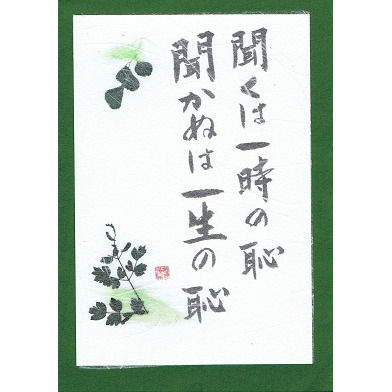 聞くは一時の恥
聞かぬは一生の恥